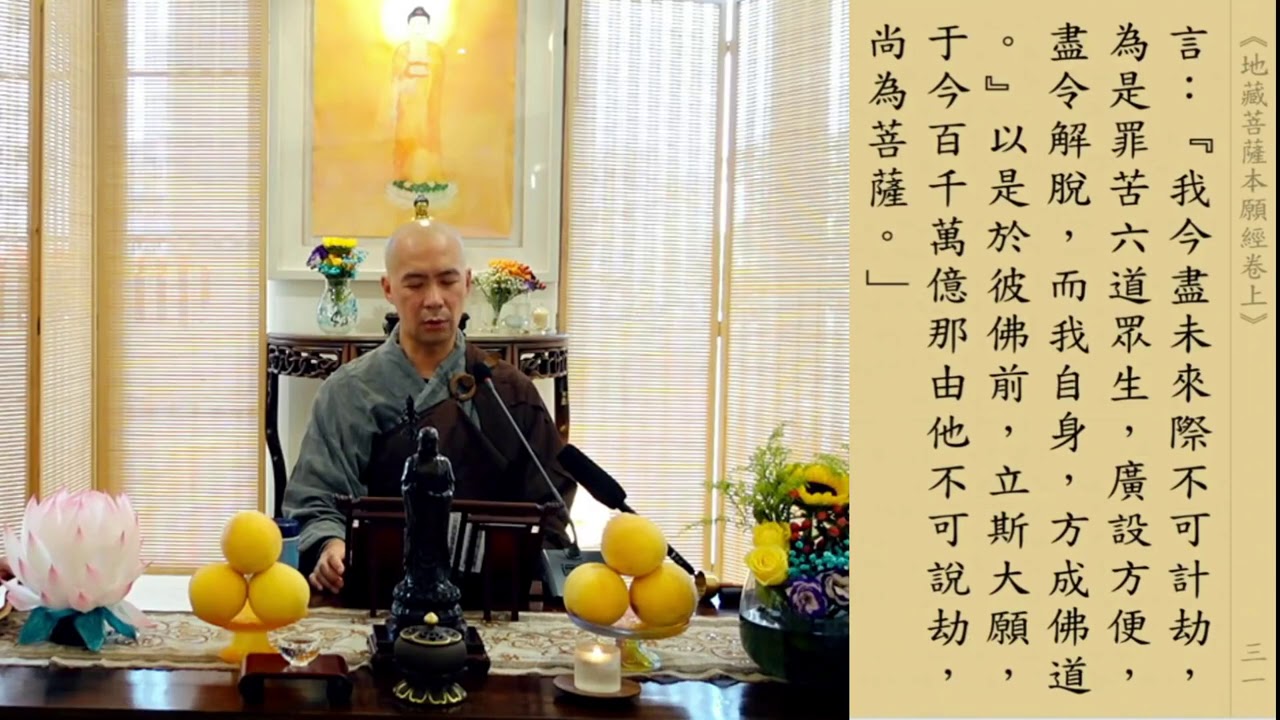 《地藏菩薩本願經卷上》
三一
言：『我今盡未來際不可計劫，
為是罪苦六道眾生，廣設方便，
盡令解脫，而我自身，方成佛道
。』以是於彼佛前，立斯大願，
于今百千萬億那由他不可說劫，
尚為菩薩。」